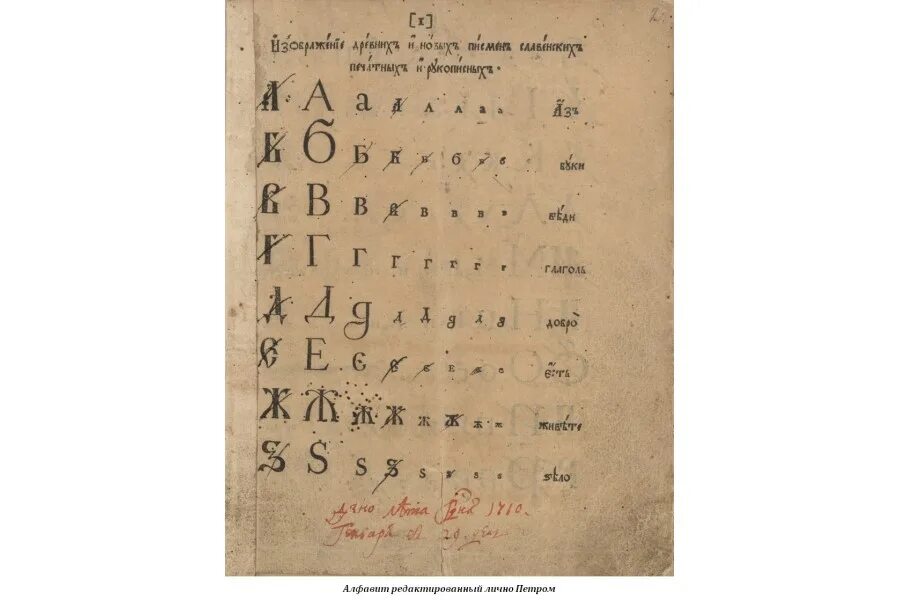 [1] 2
Изѡбраженїе древнихъ и новыхъ писменъ славенскихъ
печатныхъ и рукописныхъ.
А А а а а а а а азъ
Б Б Б б б б б б буки
В В в в в в в в вѣди
Г Г г г г г г г глаголь
Д Д д д д д д д добро
Є Е є є є є є є есть
Ж Ж ж ж ж ж ж ж живѣте
Ѕ Ѕ ѕ ѕ ѕ ѕ ѕ ѕ ѕѣло
дано лѣта 1710.
Генваря 29.
Алфавит редактированный лично Петром